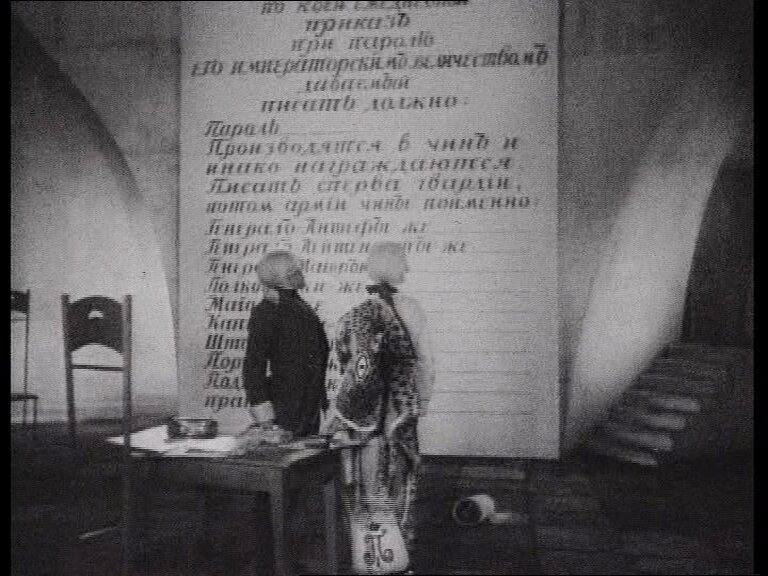 по коей ежедневной
приказъ
при паролѣ
его императорскимъ величествомъ
даваемый
писать должно:
Пароль
Производятся в чинъ и
инако награждаются
Писать сперва гвардіи,
потом арміи чины поименно:
Генералъ Аншефы же
Генералъ же
Генералъ
Полко ки же
Майо же
Кап
Шта
Пор к
Под к
пра
П